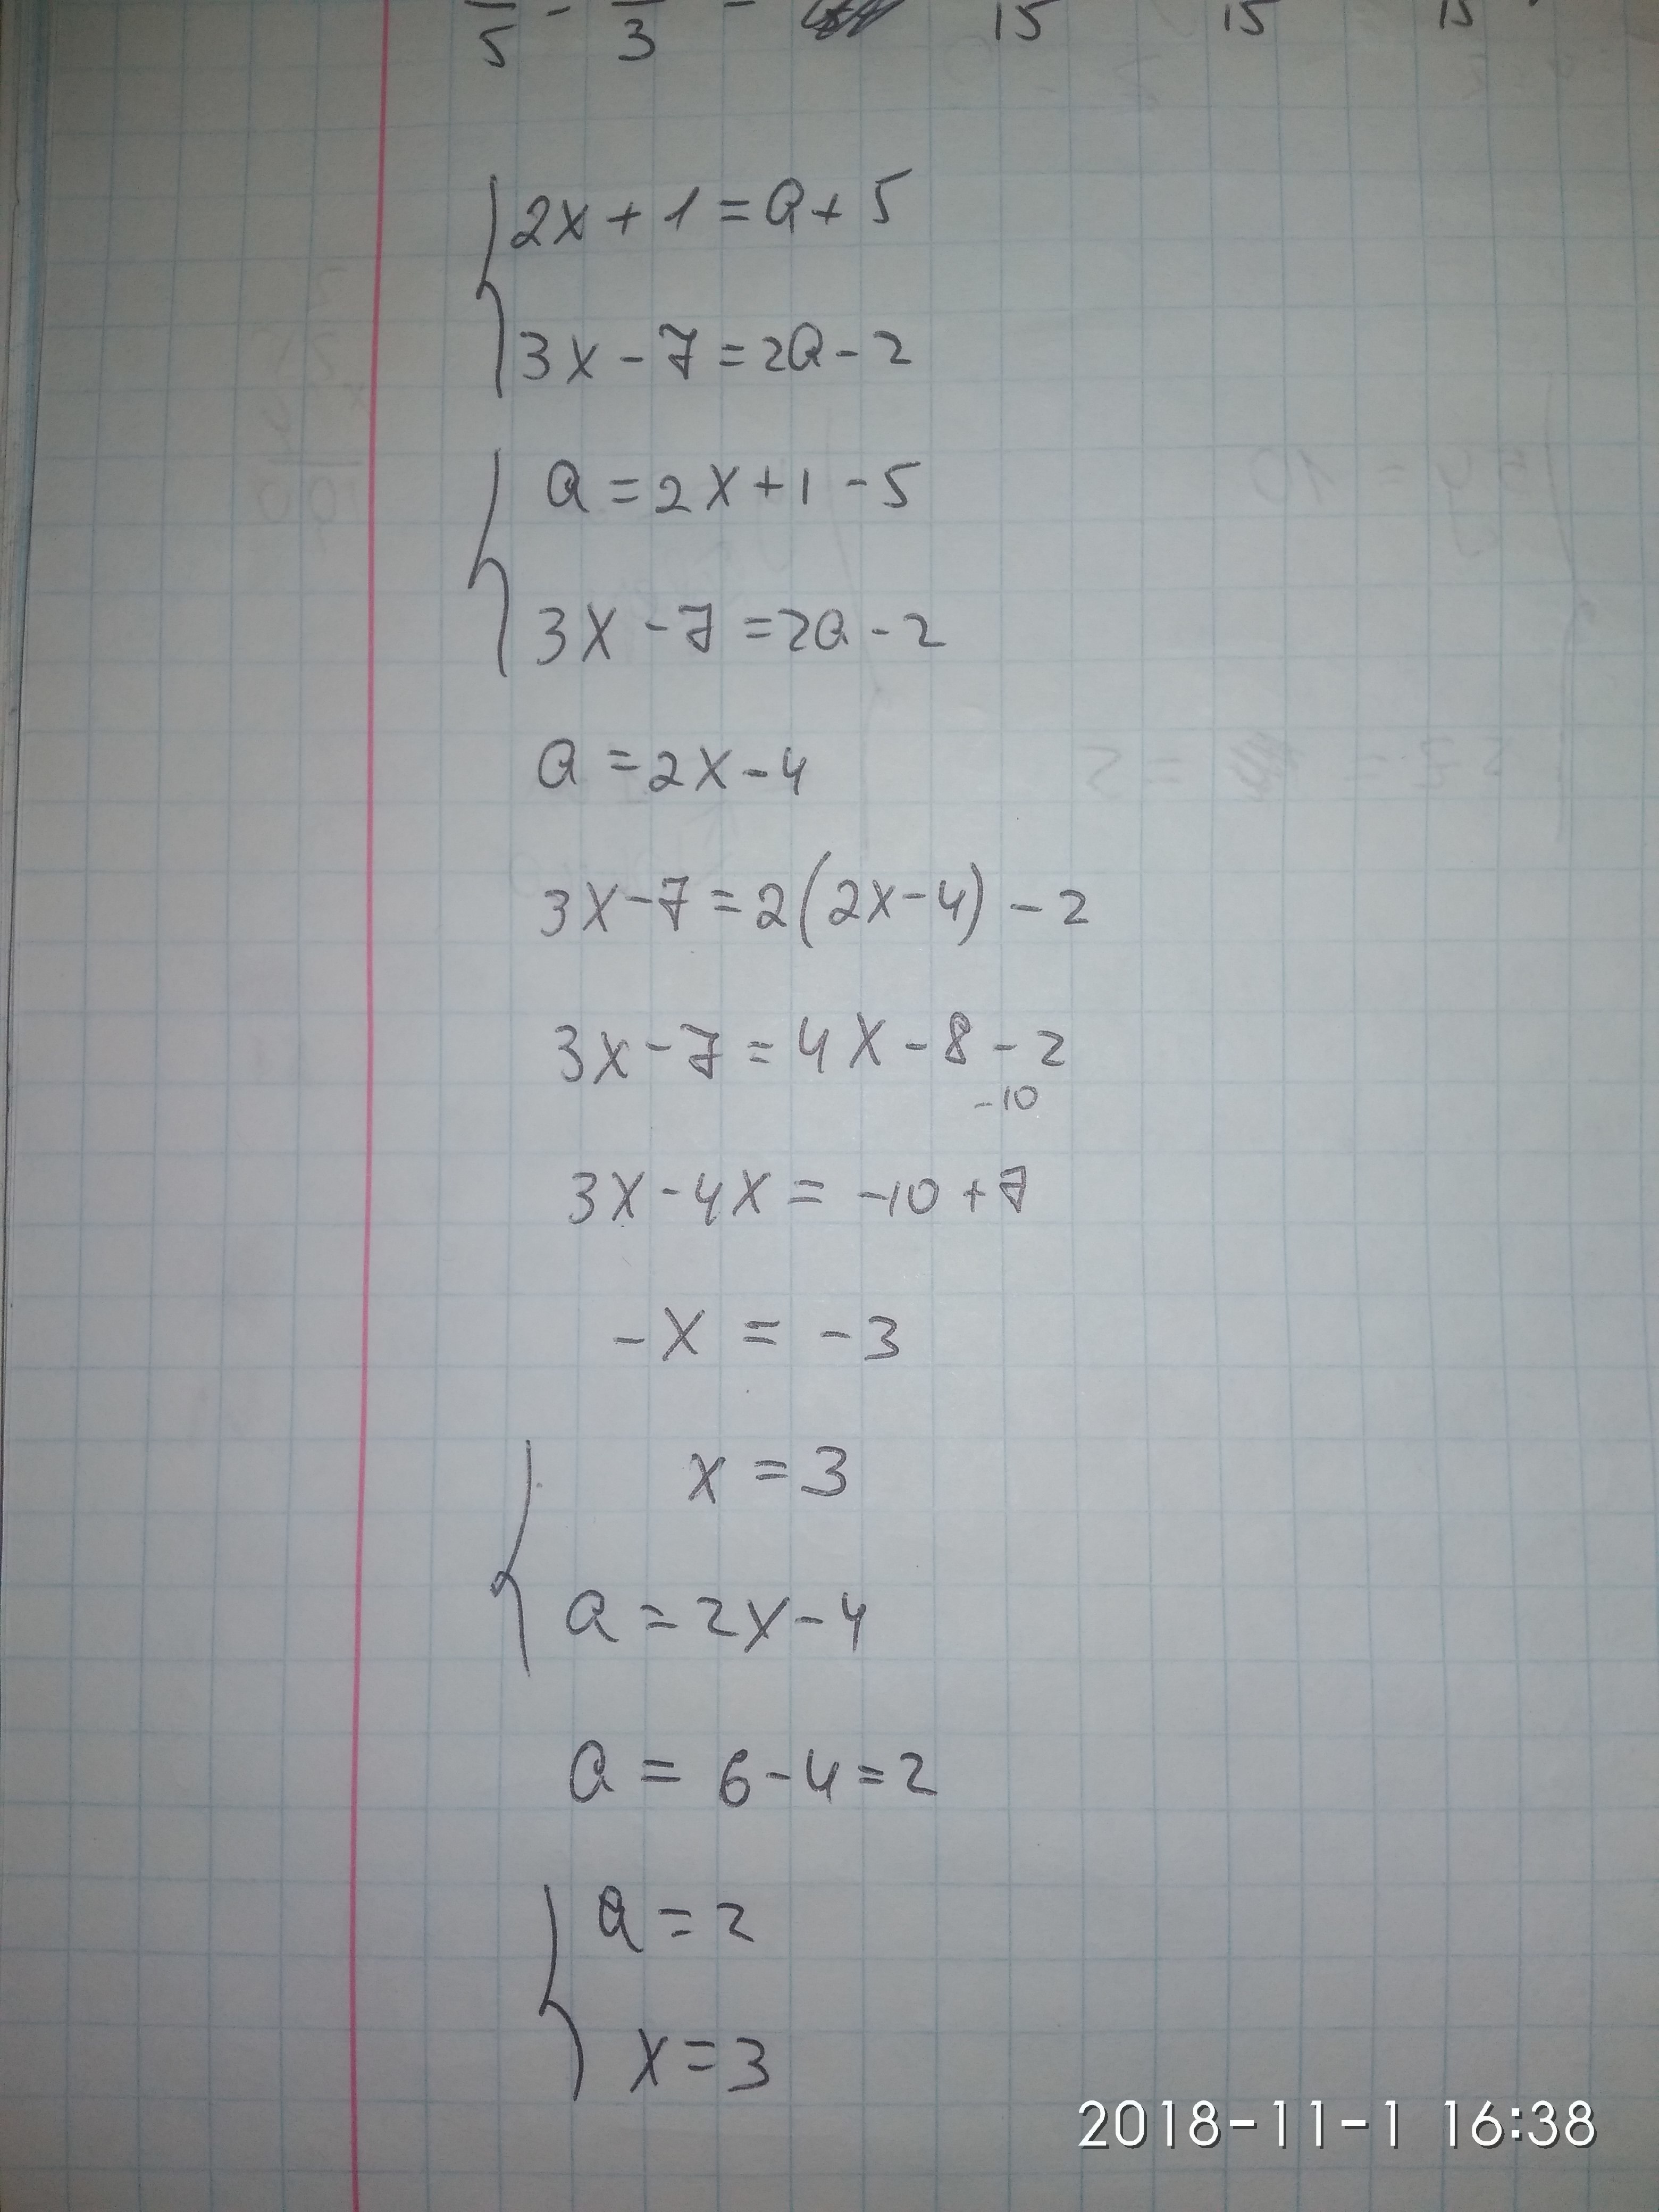 5 - 3 - 15 15 15
2x + 1 = a + 5
3x - 7 = 2a - 2
a = 2x + 1 - 5
3x - 7 = 2a - 2
a = 2x - 4
3x - 7 = 2(2x - 4) - 2
3x - 7 = 4x - 8 - 2
-10
3x - 4x = -10 + 7
-x = -3
x = 3
a = 2x - 4
a = 6 - 4 = 2
a = 2
x = 3
2018-11-1 16:38